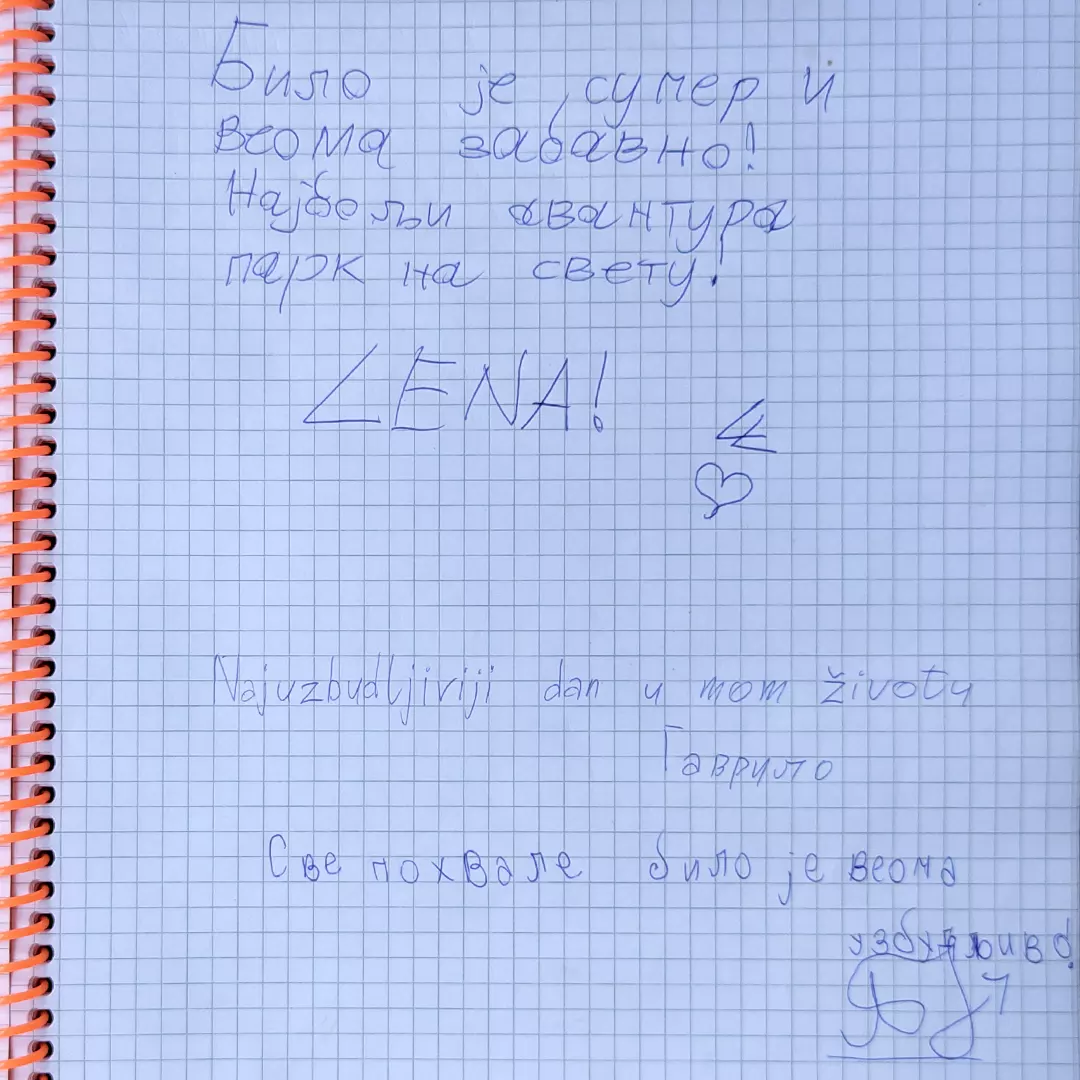 Било је супер и
веома забавно!
Најбољи авантура
парк на свету!
LENA!
Najuzbudljiviji dan u mom životu
Гаврило
Све похвале било је веома
узбудљиво!